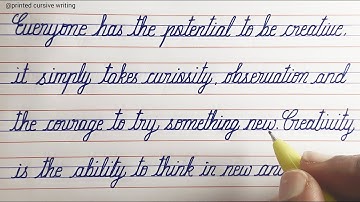 @printed cursive writing
Everyone has the potential to be creative,
it simply takes curiosity, observation and
the courage to try something new. Creativity
is the ability to think in new an